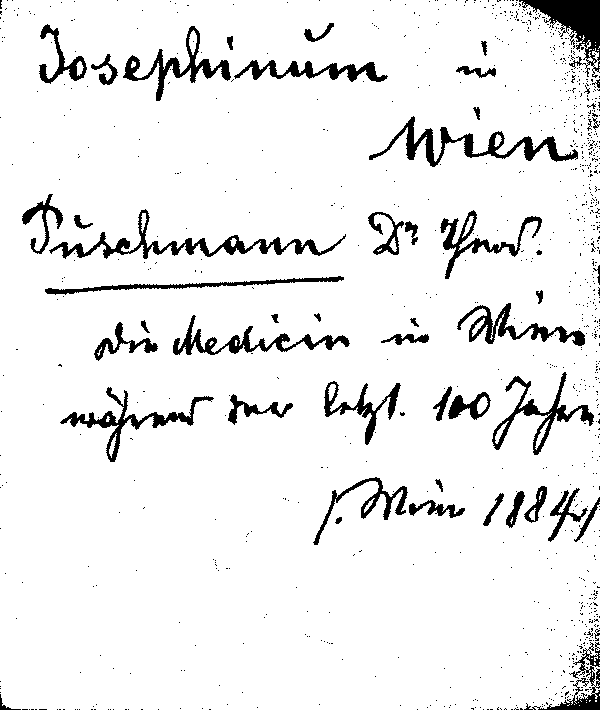 Josephinum in
Wien
Puschmann Dr Theod.
Die Medicin in Wien
während der letzt. 100 Jahre
(. Wien 1884.)